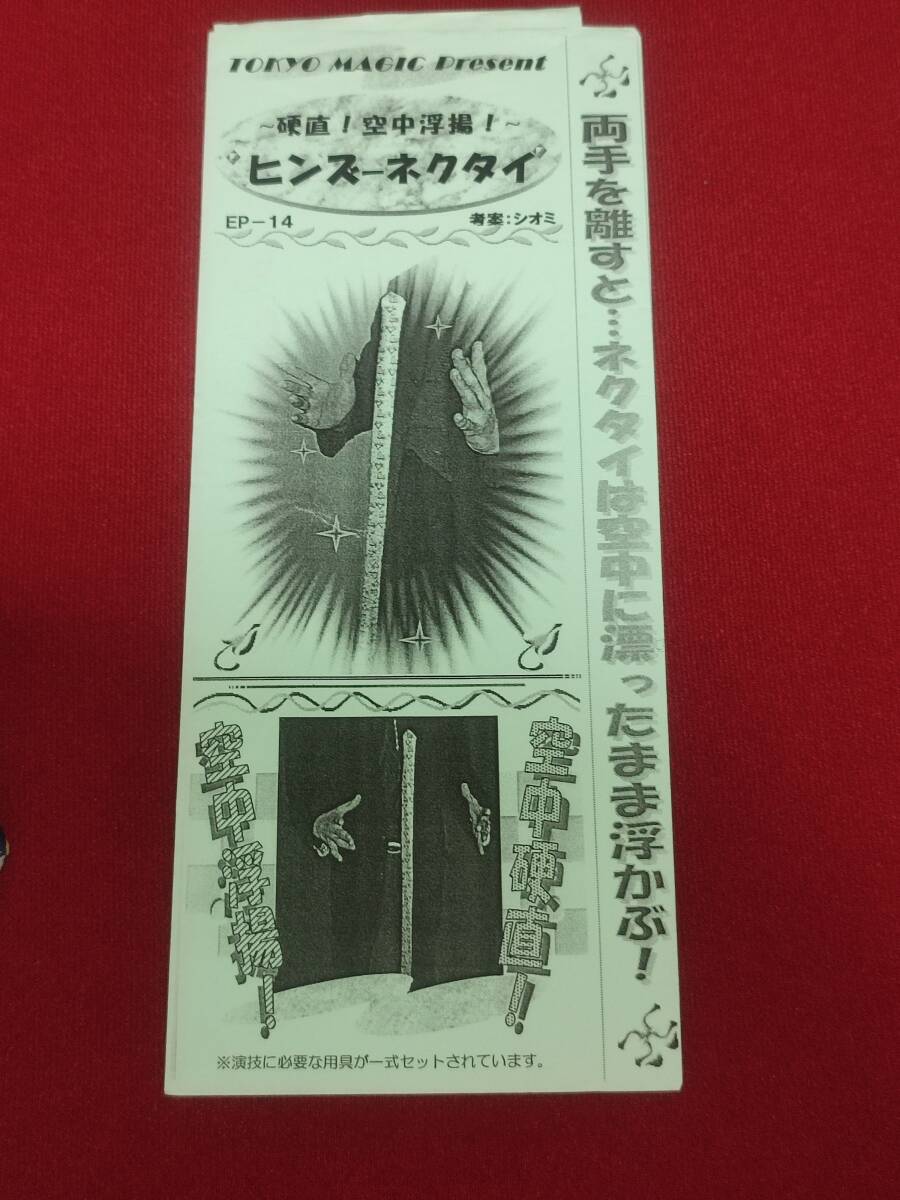 TOKYO MAGIC Present
～硬直！空中浮揚！～
ヒンズーネクタイ
EP－14
考案：シオミ
両手を離すと…ネクタイは空中に漂ったまま浮かぶ！
空中浮揚！
空中硬直！
※演技に必要な用具が一式セットされています。